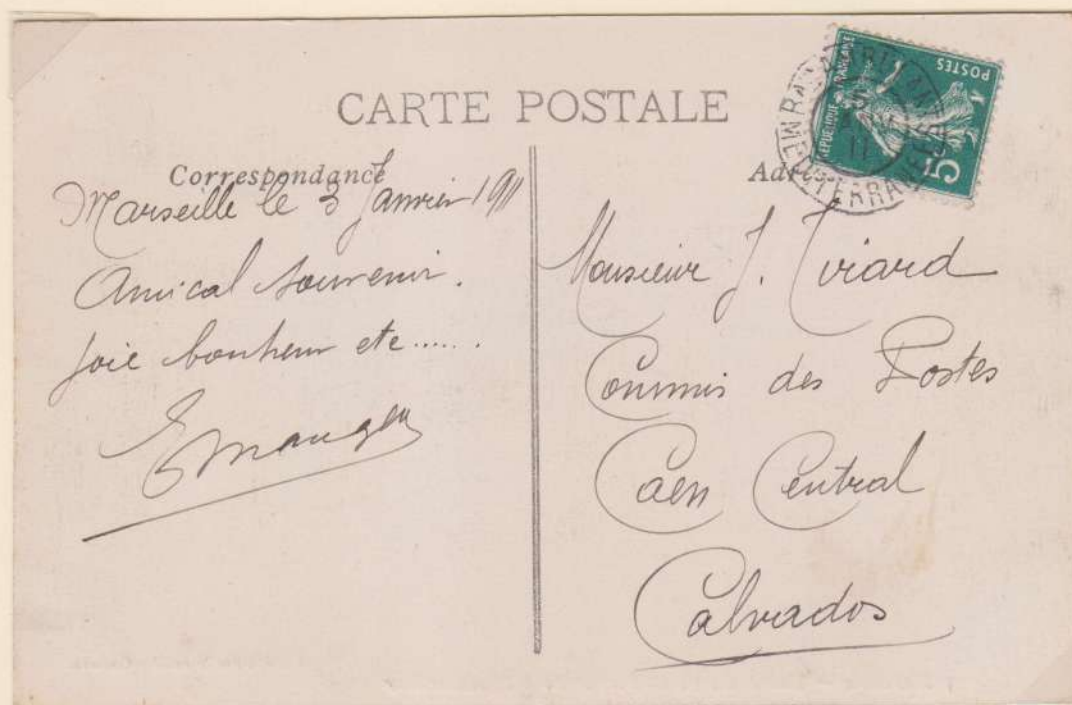 CARTE POSTALE
Correspondance
Marseille le 3 Janvier 1911
Amical souvenir.
Joie bonheur etc......
RÉPUBLIQUE FRANÇAISE
POSTES
5
MEDITERRANÉE
5
11
Monsieur J. Viard
Commis des Postes
Caen Central
Calvados